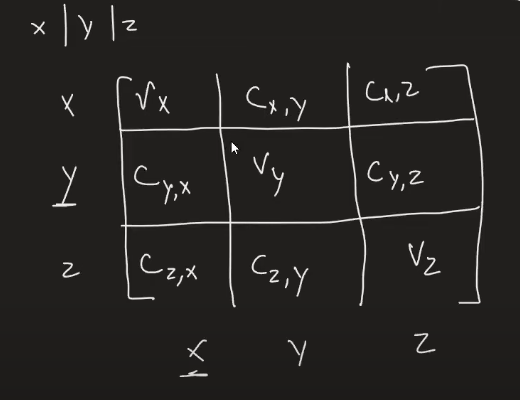 x | y | z
x Vx Cx,y Cx,z
y Cy,x Vy Cy,z
z Cz,x Cz,y Vz
x y z